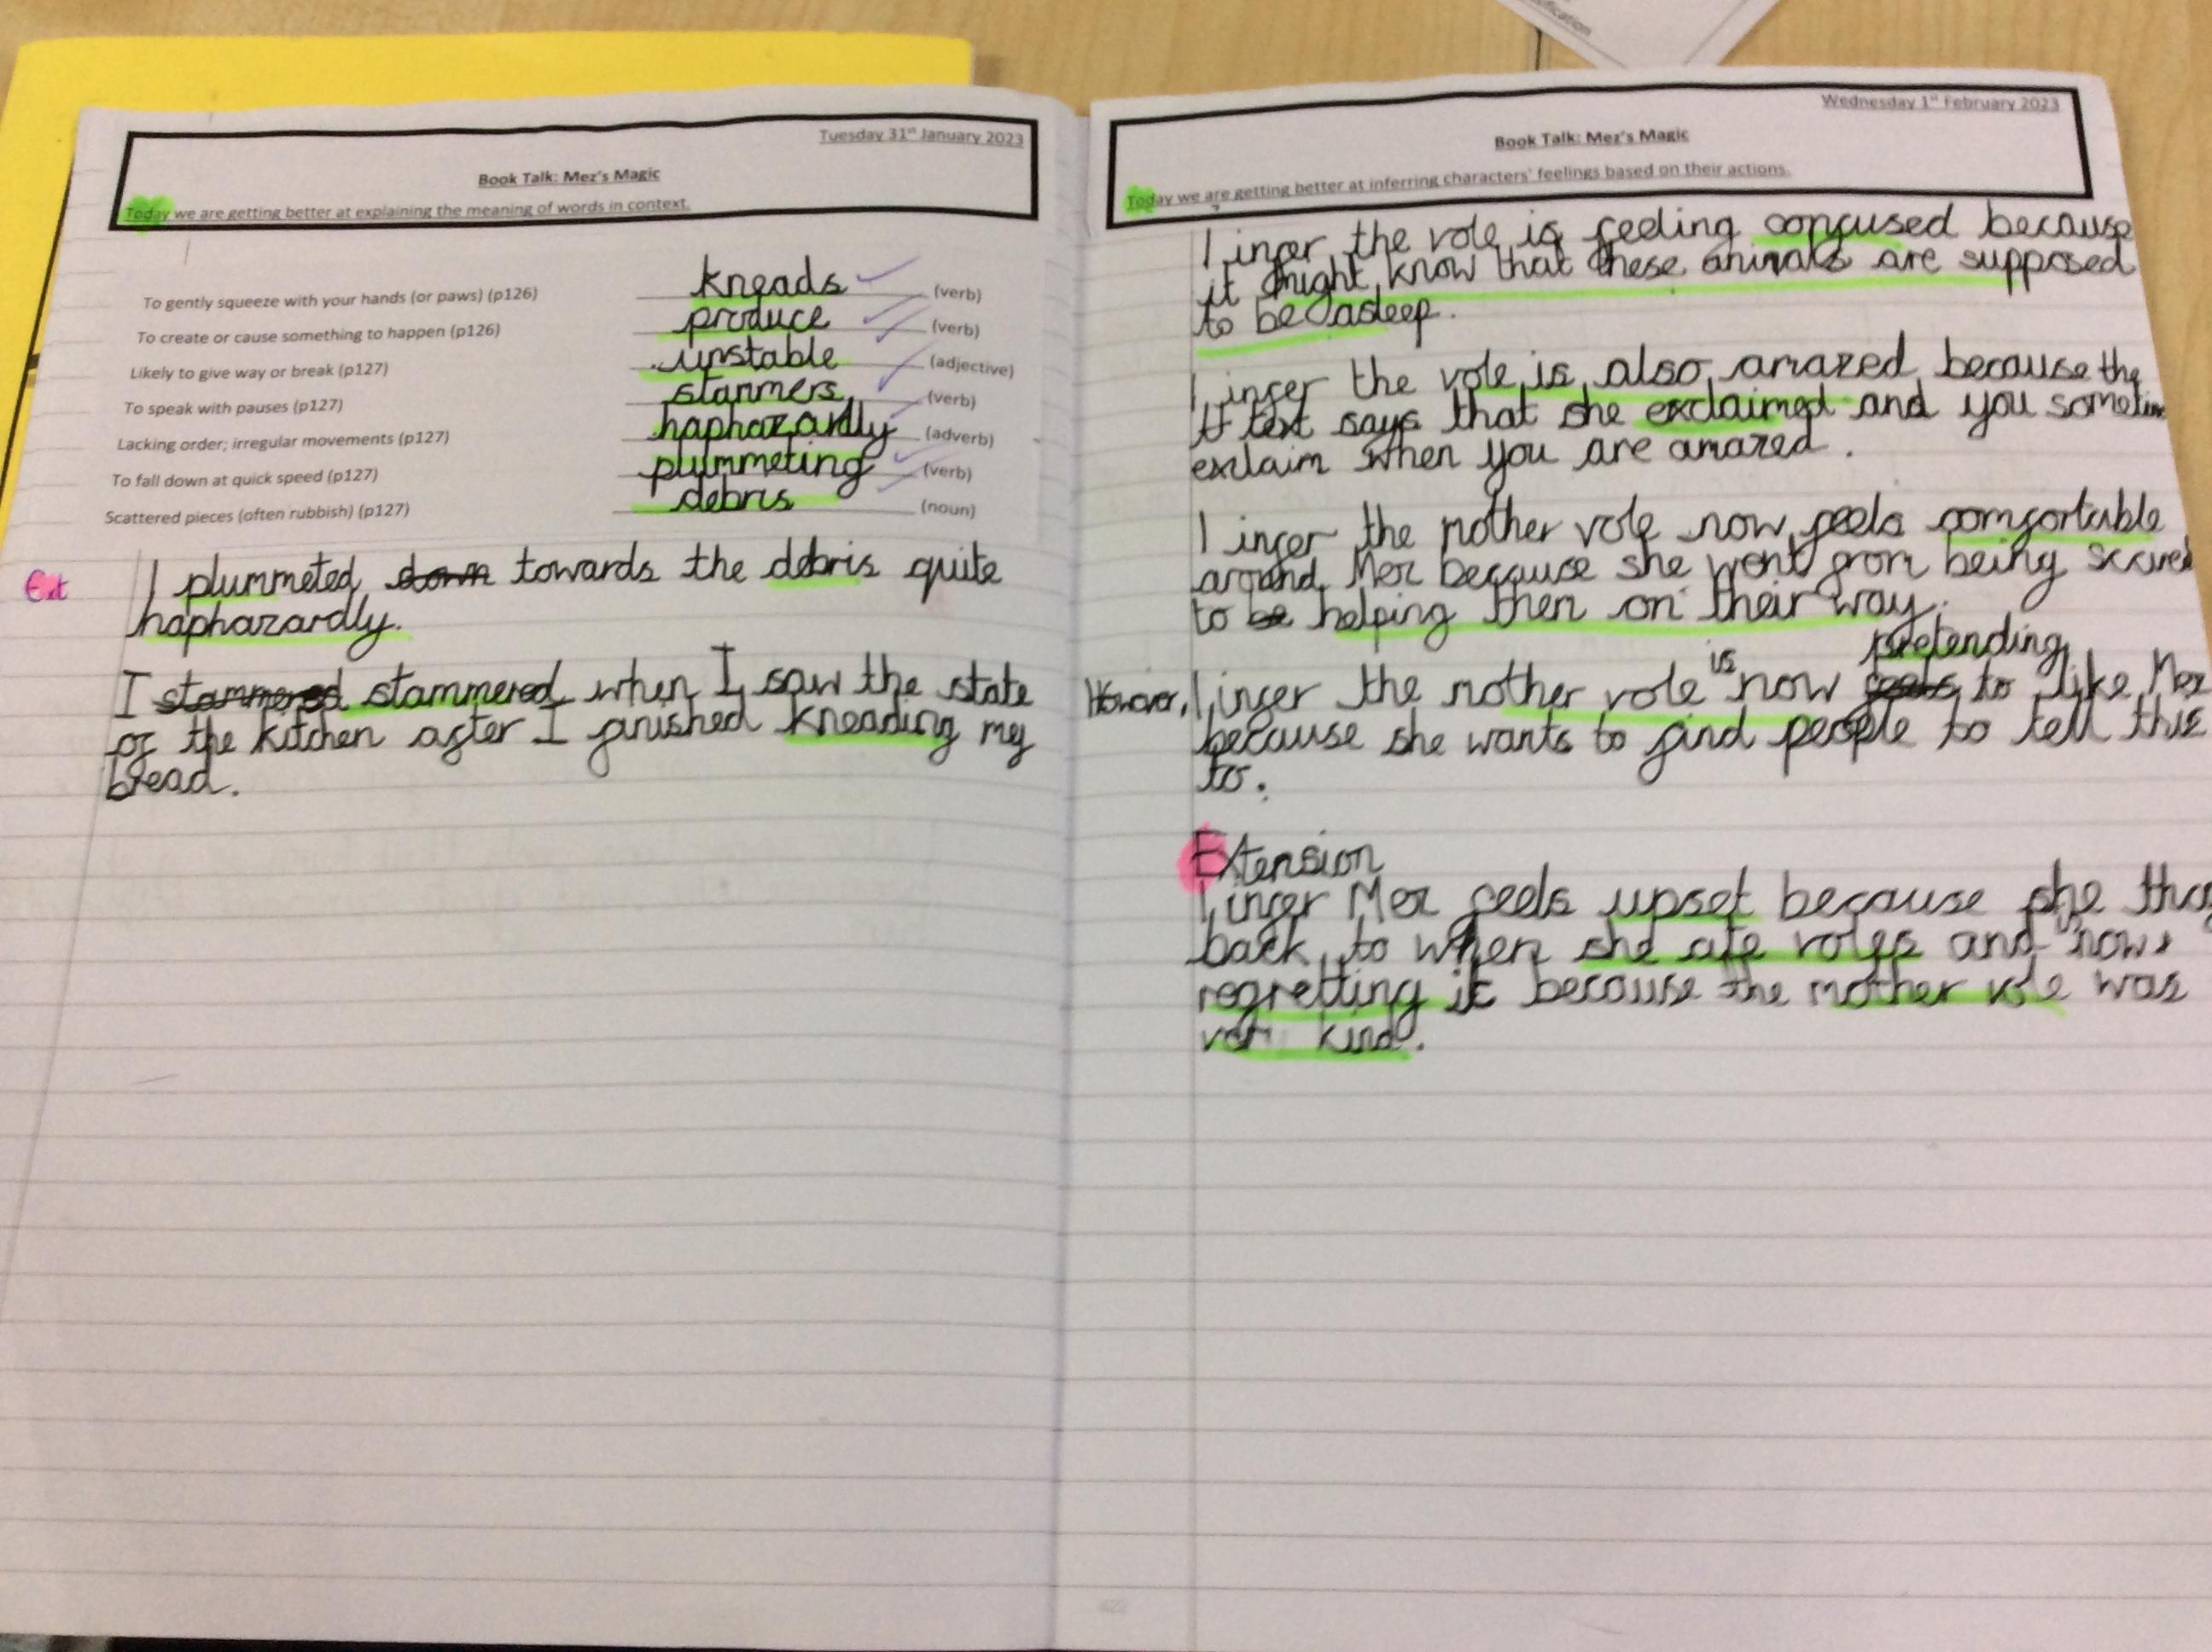 ification
Tuesday 31st January 2023
Book Talk: Mez's Magic
Today we are getting better at explaining the meaning of words in context.
To gently squeeze with your hands (or paws) (p126) kneads (verb)
To create or cause something to happen (p126) produce (verb)
Likely to give way or break (p127) unstable (adjective)
To speak with pauses (p127) stammers (verb)
Lacking order; irregular movements (p127) haphazardly (adverb)
To fall down at quick speed (p127) plummeting (verb)
Scattered pieces (often rubbish) (p127) debris (noun)
Ext I plummeted down towards the debris quite
haphazardly.
I stammered stammered when I saw the state
of the kitchen after I finished kneading my
bread.
Wednesday 1st February 2023
Book Talk: Mez's Magic
Today we are getting better at inferring characters' feelings based on their actions.
I infer the vole is feeling confused because
it might know that these animals are supposed
to be asleep.
I infer the vole is also amazed because the
text says that she exclaimed and you sometim
exclaim when you are amazed.
I infer the mother vole now feels comfortable
around Mez because she went from being scared
to be helping them on their way.
is pretending
However, I infer the mother vole now feels to like Mez
because she wants to find people to tell this
to.
Extension
I infer Mez feels upset because she
back to when she ate voles and now
regretting it because the mother vole was
kind.